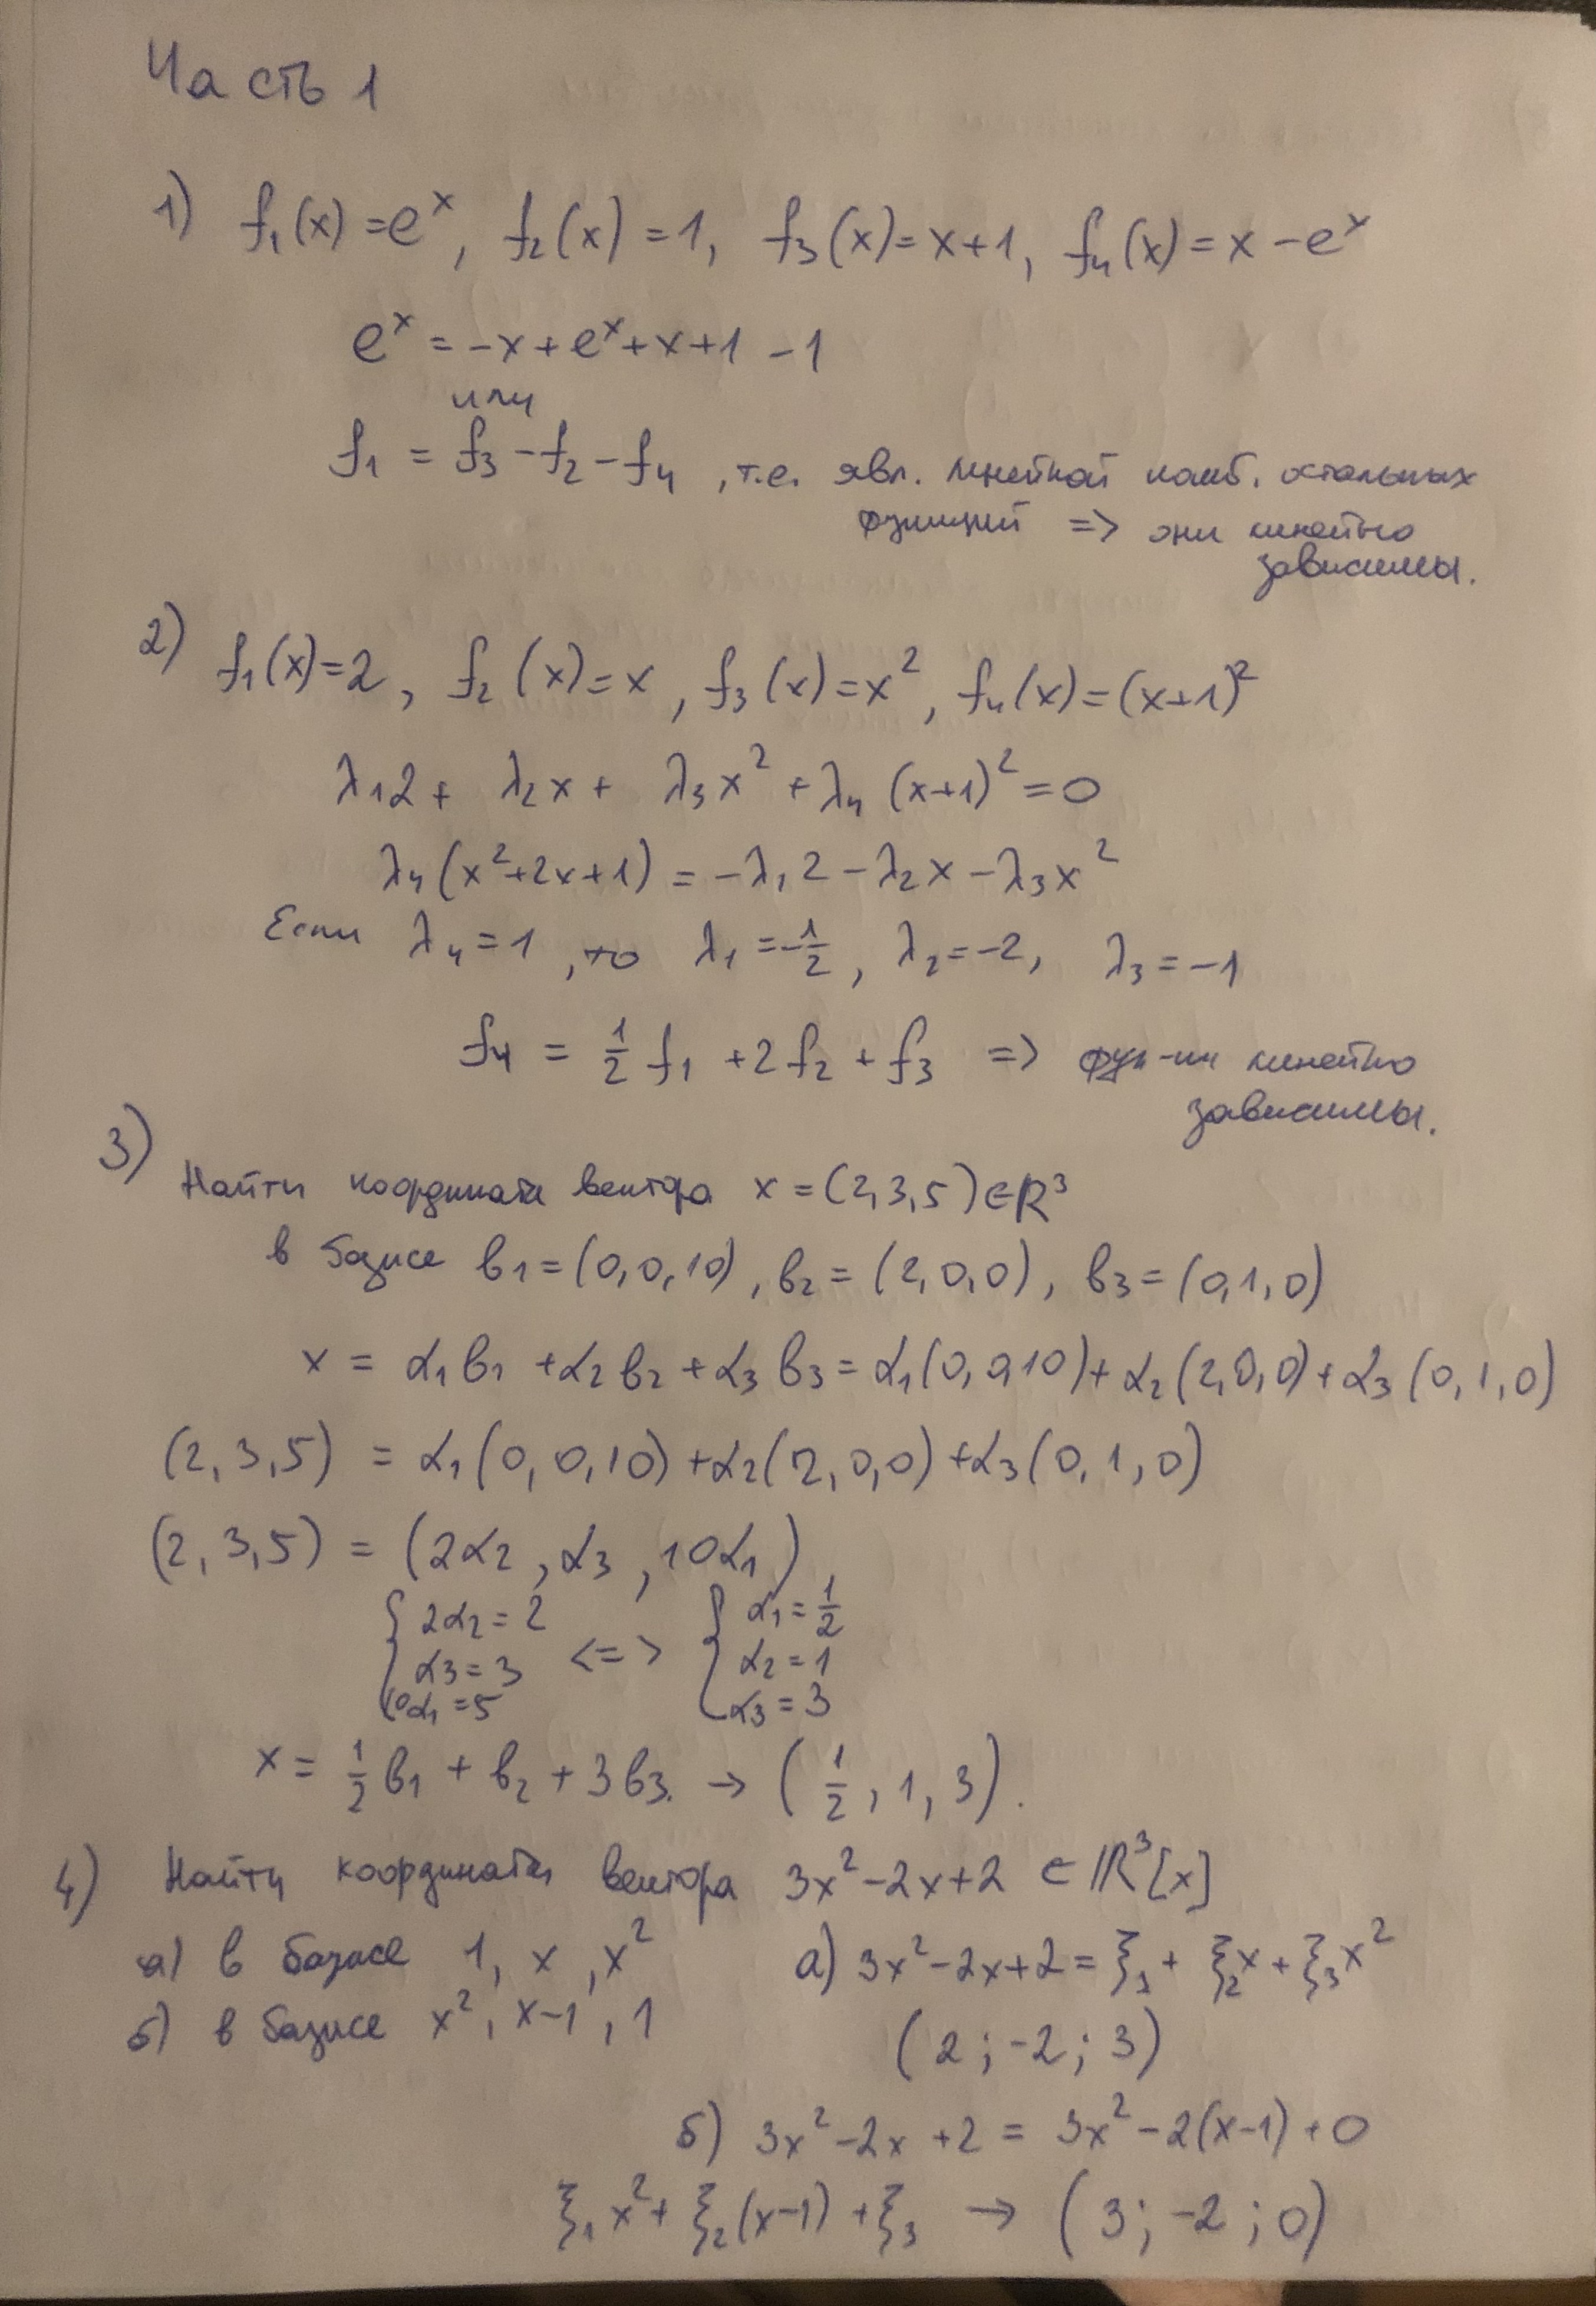 Часть 1
1) f₁(x) = eˣ, f₂(x) = 1, f₃(x) = x+1, f₄(x) = x - eˣ
eˣ = -x + eˣ + x + 1 - 1
или
f₁ = f₃ - f₂ - f₄, т.е. явл. линейной комб. остальных
функций => они линейно
зависимы.
2) f₁(x) = 2, f₂(x) = x, f₃(x) = x², f₄(x) = (x+1)²
λ₁2 + λ₂x + λ₃x² + λ₄(x+1)² = 0
λ₄(x²+2x+1) = -λ₁2 - λ₂x - λ₃x²
Если λ₄ = 1, то λ₁ = -1/2, λ₂ = -2, λ₃ = -1
f₄ = 1/2 f₁ + 2f₂ + f₃ => фун-ии линейно
зависимы.
3) Найти координаты вектора x = (2,3,5) ∈ R³
в базисе b₁ = (0,0,10), b₂ = (2,0,0), b₃ = (0,1,0)
x = α₁b₁ + α₂b₂ + α₃b₃ = α₁(0,0,10) + α₂(2,0,0) + α₃(0,1,0)
(2,3,5) = α₁(0,0,10) + α₂(2,0,0) + α₃(0,1,0)
(2,3,5) = (2α₂, α₃, 10α₁)
{ 2α₂ = 2 { α₁ = 1/2
α₃ = 3 <=> α₂ = 1
10α₁ = 5 α₃ = 3
x = 1/2 b₁ + b₂ + 3b₃. → (1/2, 1, 3).
4) Найти координаты вектора 3x² - 2x + 2 ∈ ℝ³[x]
а) в базисе 1, x, x²
б) в базисе x², x-1, 1
а) 3x² - 2x + 2 = ξ₁ + ξ₂x + ξ₃x²
(2; -2; 3)
б) 3x² - 2x + 2 = 3x² - 2(x-1) + 0
ξ₁x² + ξ₂(x-1) + ξ₃ → (3; -2; 0)